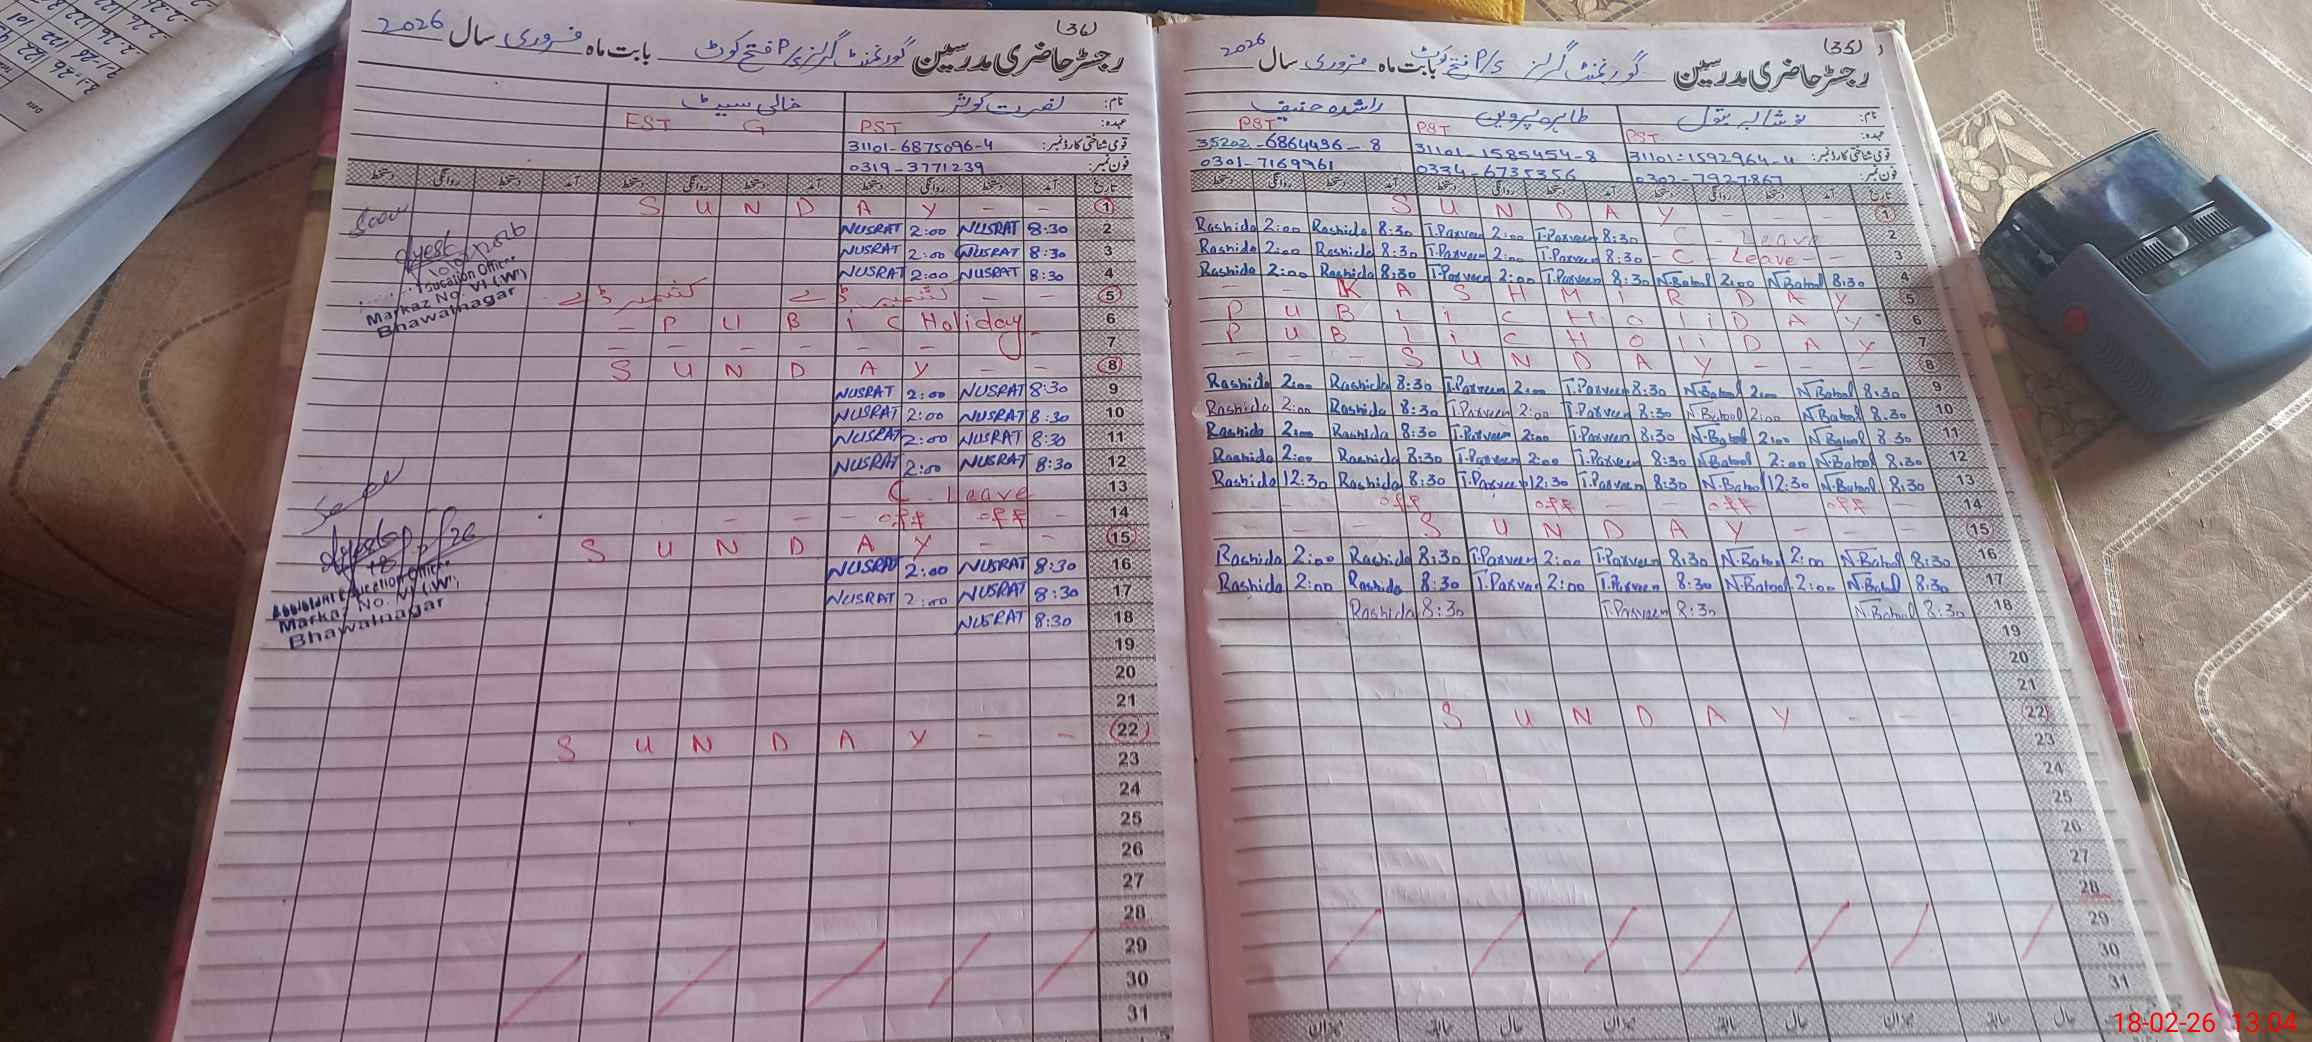 (35)
رجسٹر حاضری مدرسین گورنمنٹ گرلز P/S فتح کوٹ بابت ماہ فروری سال 2026
نام: نوشابہ بتول طاہرہ پروین راشدہ حنیف
عہدہ: PST PST PST
قومی شناختی کارڈ نمبر: 31101-1592964-4 31101-1585454-8 35202-6864436-8
فون نمبر: 0302-7927867 0334-6735356 0301-7169961
تاریخ آمد دستخط روانگی دستخط آمد دستخط روانگی دستخط آمد دستخط روانگی دستخط
S U N D A Y - - - 1
Rashida 2:00 Rashida 8:30 T.Parveen 2:00 T.Parveen 8:30 - C - Leave 2
Rashida 2:00 Rashida 8:30 T.Parveen 2:00 T.Parveen 8:30 - C - Leave - - 3
Rashida 2:00 Rashida 8:30 T.Parveen 2:00 T.Parveen 8:30 N.Batool 2:00 N.Batool 8:30 4
- - K A S H M i R D A Y 5
P U B L i C H O L i D A Y 6
P U B L i C H O L i D A Y 7
- - - S U N D A Y - - 8
Rashida 2:00 Rashida 8:30 T.Parveen 2:00 T.Parveen 8:30 N.Batool 2:00 N.Batool 8:30 9
Rashida 2:00 Rashida 8:30 T.Parveen 2:00 T.Parveen 8:30 N.Batool 2:00 N.Batool 8:30 10
Rashida 2:00 Rashida 8:30 T.Parveen 2:00 T.Parveen 8:30 N.Batool 2:00 N.Batool 8:30 11
Rashida 2:00 Rashida 8:30 T.Parveen 2:00 T.Parveen 8:30 N.Batool 2:00 N.Batool 8:30 12
Rashida 12:30 Rashida 8:30 T.Parveen 12:30 T.Parveen 8:30 N.Batool 12:30 N.Batool 8:30 13
- - off - - off - - off - off - 14
- - - S U N D A Y - - 15
Rashida 2:00 Rashida 8:30 T.Parveen 2:00 T.Parveen 8:30 N.Batool 2:00 N.Batool 8:30 16
Rashida 2:00 Rashida 8:30 T.Parveen 2:00 T.Parveen 8:30 N.Batool 2:00 N.Batool 8:30 17
Rashida 8:30 T.Parveen 8:30 N.Batool 8:30 18
19
20
21
S U N D A Y - - 22
23
24
25
26
27
28
29
30
31
حال سابقہ میزان حال سابقہ میزان حال سابقہ میزان
(36)
رجسٹر حاضری مدرسین گورنمنٹ گرلز P/S فتح کوٹ بابت ماہ فروری سال 2026
نام: نصرت کوثر خالی سیٹ
عہدہ: PST EST G
قومی شناختی کارڈ نمبر: 31101-6875096-4
فون نمبر: 0319-3771239
تاریخ آمد دستخط روانگی دستخط آمد دستخط روانگی دستخط آمد دستخط روانگی دستخط
S U N D A Y - - 1
NUSRAT 2:00 NUSRAT 8:30 2
NUSRAT 2:00 NUSRAT 8:30 3
NUSRAT 2:00 NUSRAT 8:30 4
کشمیر ڈے کشمیر ڈے - - 5
- P U B i C Holiday - 6
- - - - - - 7
S U N D A Y - - 8
NUSRAT 2:00 NUSRAT 8:30 9
NUSRAT 2:00 NUSRAT 8:30 10
NUSRAT 2:00 NUSRAT 8:30 11
NUSRAT 2:00 NUSRAT 8:30 12
C - Leave 13
- - - off off - 14
S U N D A Y - - 15
NUSRAT 2:00 NUSRAT 8:30 16
NUSRAT 2:00 NUSRAT 8:30 17
NUSRAT 8:30 18
19
20
21
S U N D A Y - - 22
23
24
25
26
27
28
29
30
31
Seen
Education Officer
Markaz No. VI (W)
Bhawalnagar
Seen
Education Officer
Markaz No. VI (W)
Bhawalnagar
18-02-26 13:04